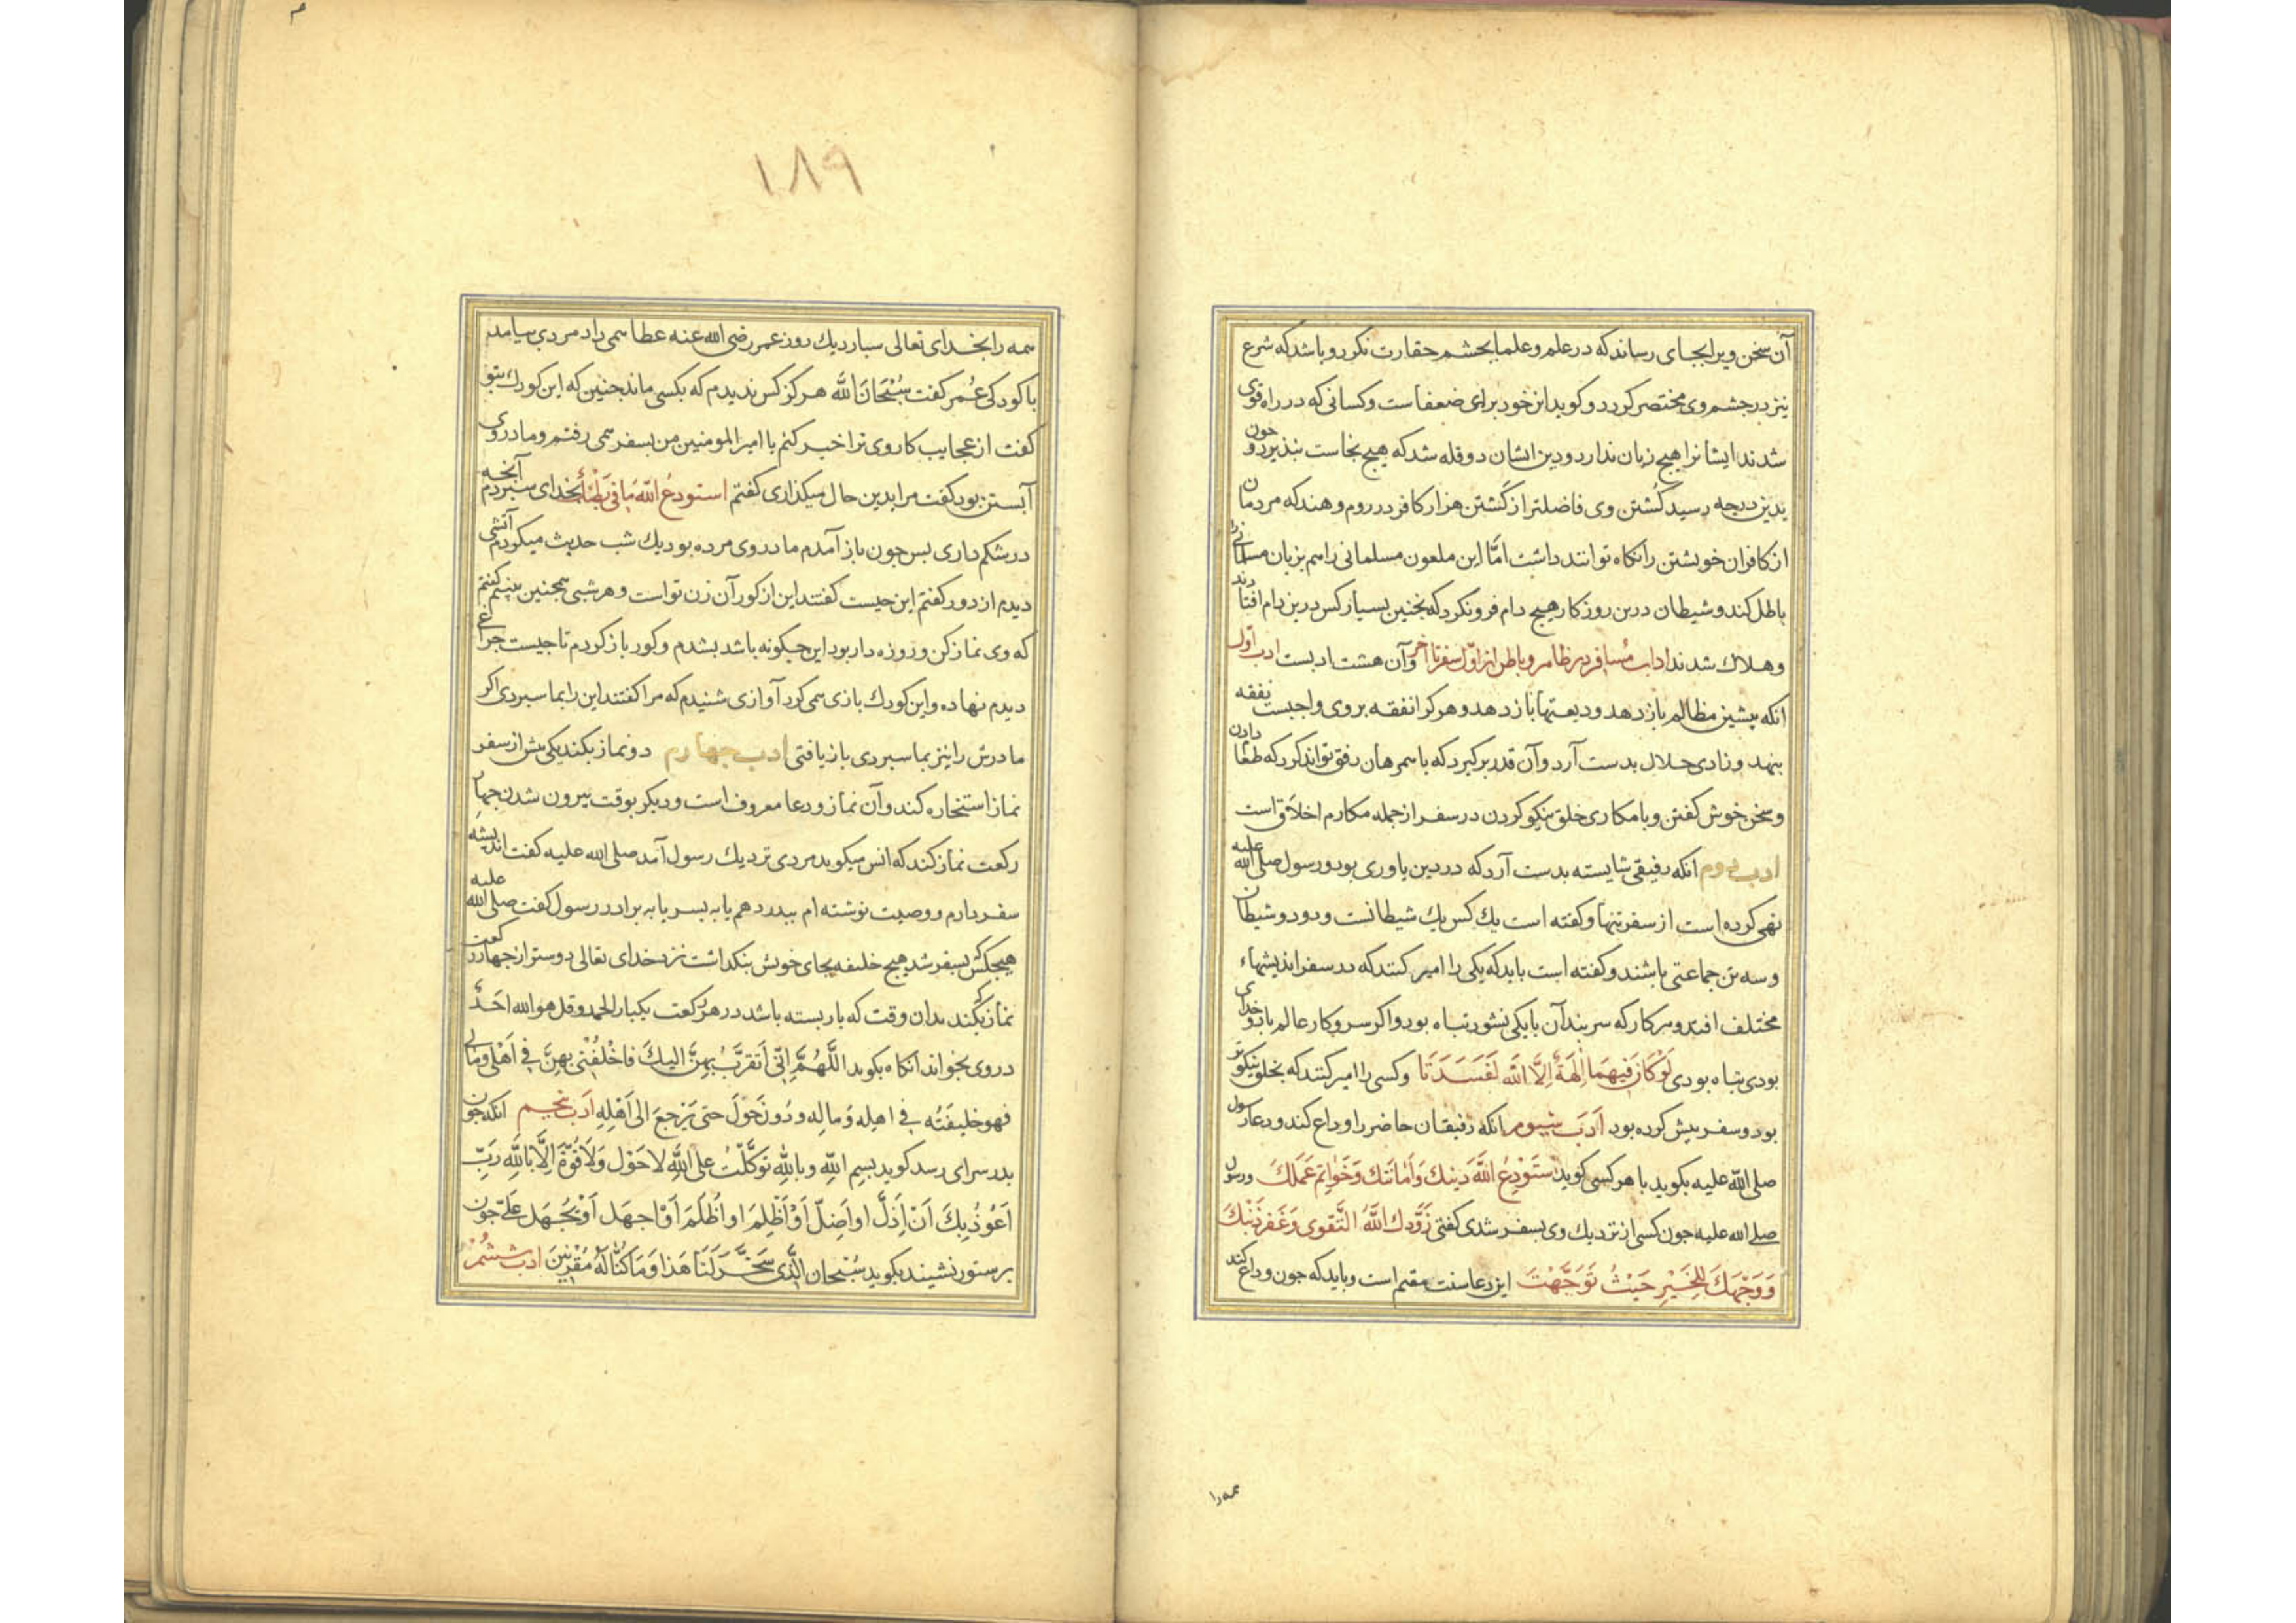 آن سخن ویرا بجای رساند که در علم و علما بچشم حقارت نکرد و باشد که شرع
نیز در چشم وی مختصر کردد و کوید این خود برای ضعفاست و کسانی که در راه قوی
شدند ایشانرا هیچ زیان ندارد و دین ایشان دو قلّه شد که هیچ نجاست نپذیرد و چون
بدین درجه رسید کشتن وی فاضلتر از کشتن هزار کافر در روم و هند که مردمان
از کافران خویشتن را نکاه توانند داشت امّا این ملعون مسلمانی را هم بزبان مسلمانی
باطل کند و شیطان درین روزکار هیچ دام فرو نکرد که بخنین بسیار کس درین دام افتادند
و هلاك شدند اداب مسافر در ظاهر و باطن از اوّل سفر تا آخر و آن هشت ادبست ادب اوّل
انکه پیشین مظالم باز دهد و دیعتها باز دهد و هر کرا نفقه بر وی واجبست نفقه
بنهد و زادی حلال بدست آرد و آن قدر برکیرد که با همرهان رفق تواند کرد که طعام دادن
و سخن خوش کفتن و با مکاری خلق نیکو کردن در سفر از جمله مکارم اخلاق است
ادب دوم انکه رفیقی شایسته بدست آرد که در دین یاوری بود و رسول صلی الله علیه
نهی کرده است از سفر تنها و کفته است یك کس یك شیطانست و دو دو شیطان
و سه تن جماعتی باشند و کفته است باید که یکی را امیر کنند که در سفر اندیشهاء
مختلف افتد و هر کار که سر بند آن با یکی نشود تباه بود و اکر سر و کار عالم با دو خدای
بودی تباه بودی لَوْ كَانَ فِيهِمَا اٰلِهَةٌ اِلَّا اللّٰه لَفَسَدَتَا و کسی را امیر کنند که بخلق نیکوتر
بود و سفر بیش کرده بود اَدَب سیوم انکه رفیقان حاضر را وداع کند و دعاء رسول
صلی اللّه علیه بکوید با هر کسی کوید اَستَوْدِعُ اللّٰهَ دینك وَاَمَانَتَك وَخَواتِمَ عَمَلَكَ و رسول
صلی الله علیه جون کسی از نزدیك وی بسفر شدی کفتی زَوَّدك اللّٰهُ التَّقوی وَغَفَرَ ذَنْبَكَ
وَوَجَّهَكَ لِلْخَيْرِ حَيْثُ تَوَجَّهْتَ این دعا سنت مقیم است و باید که جون وداع کند
همه را
١٨٩
همه را بخدای تعالی سبارد یك روز عمر رضی الله عنه عطا همی داد مردی بیامد
با کودکی عُمر کفت سُبْحَانَ اللّٰه هرکز کس ندیدم که بکسی ماند جنین که این کودك بتو
کفت از عجایب کار وی ترا خبر کنم یا امیر المومنین من بسفر همی رفتم و مادر وی
آبستن بود کفت مرا بدین حال میکذاری کفتم استودعُ اللّٰه مَا فی بَطْنُكِ بخدای سبردم آنجه
در شکم داری بس جون باز آمدم مادر وی مرده بود یك شب حدیث میکردم آتشی
دیدم از دور کفتم این جیست کفتند این از کور آن زن تو است و هر شبی همجنین بینیم کفتم
که وی نماز کن و روزه دار بود این جکونه باشد بشدم و کور باز کردم تا جیست جراغی
دیدم نهاده و این کودك بازی همی کرد آوازی شنیدم که مرا کفتند این را بما سبردی اکر
مادرش را نیز بما سبردی باز یافتی ادب جهارم دو نماز بکند یکی بیش از سفر
نماز استخاره کند و آن نماز و دعا معروف است و دیکر بوقت بیرون شدن جهار
رکعت نماز کند که انس میکوید مردی نزدیك رسول آمد صلی الله علیه کفت اندیشه
سفر دارم و وصیت نوشته ام ببدر دهم یا به بسر یا به برادر رسول کفت صلی الله علیه
هیجکس بسفر شد هیج خلیفه بجای خویش بنکداشت نزد خدای تعالی دوستر از جهار رکعت
نماز که بکند بدان وقت که بار بسته باشد در هر رکعت یکبار الحمد و قل هو الله احَدٌ
در وی بخواند انکاه بکوید اللّٰهُمَّ اِنّی اَتَقرَّبُ بهِنَّ الیكَ فاخْلُفْنی بهِنَّ فی اَهْلی و مالی
فهو خلیفَتُه فی اهله وَماله و دُون حَوْلَ حتی یَرْجعَ الی اَهْلِهِ اَدَب بنجم انکه جون
بدر سرای رسد کوید بسم اللّٰهِ وباللّٰهِ تَوَكَّلْتُ علی اللّٰهِ لا حَوْل وَلا قُوَّةَ اِلَّا باللّٰهِ رَبِّ
اَعُوذُ بِكَ اَنْ اَذِلَّ او اَضِلّ اَوْ اَظْلِمَ او اُظْلَمَ اَوْ اجهَل اَوْ یُجْهَل عَلَیَّ جون
بر ستور نشیند بکوید سُبْحان الَّذی سَخَّرَ لَنَا هَذا وَمَا كُنَّا لَهُ مُقْرِنِینَ ادب ششم